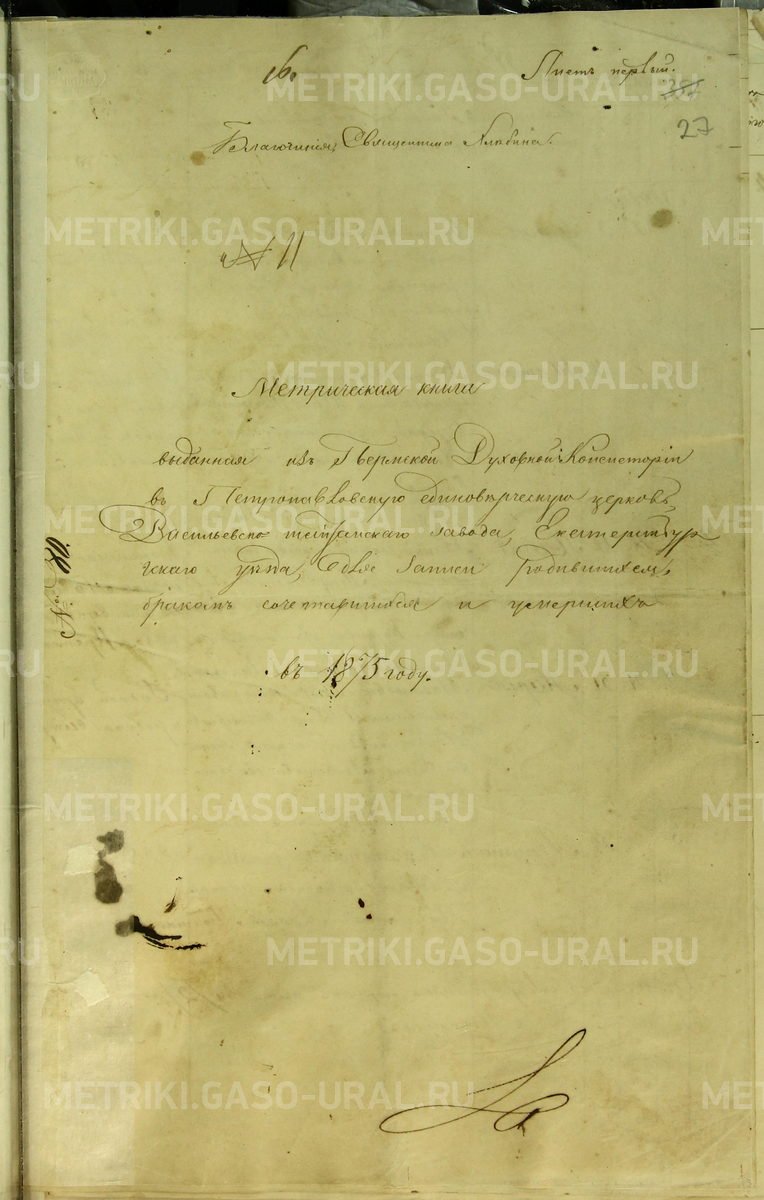 Листъ первый.
27
Благочинія Священника
№ 11
Метрическая книга
выданная изъ Пермской Духовной Консисторіи
въ Петропавловскую единоверческую церковь
Васильевско завода, Екатеринбур
гскаго уезда, для записи родившихся,
бракомъ сочетавшихся и умершихъ
въ 1875 году.
№ 80.
METRIKI.GASO-URAL.RU